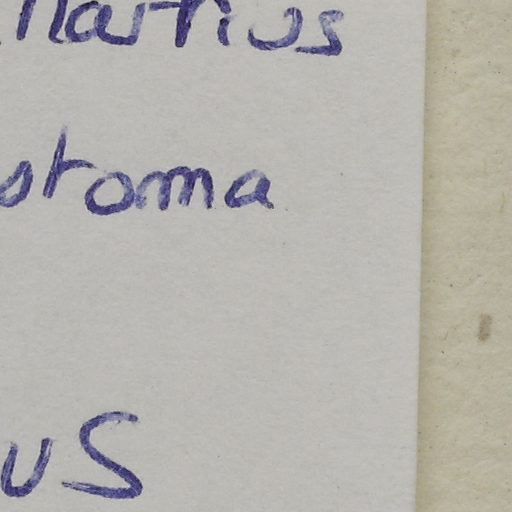 Martius
stoma
us